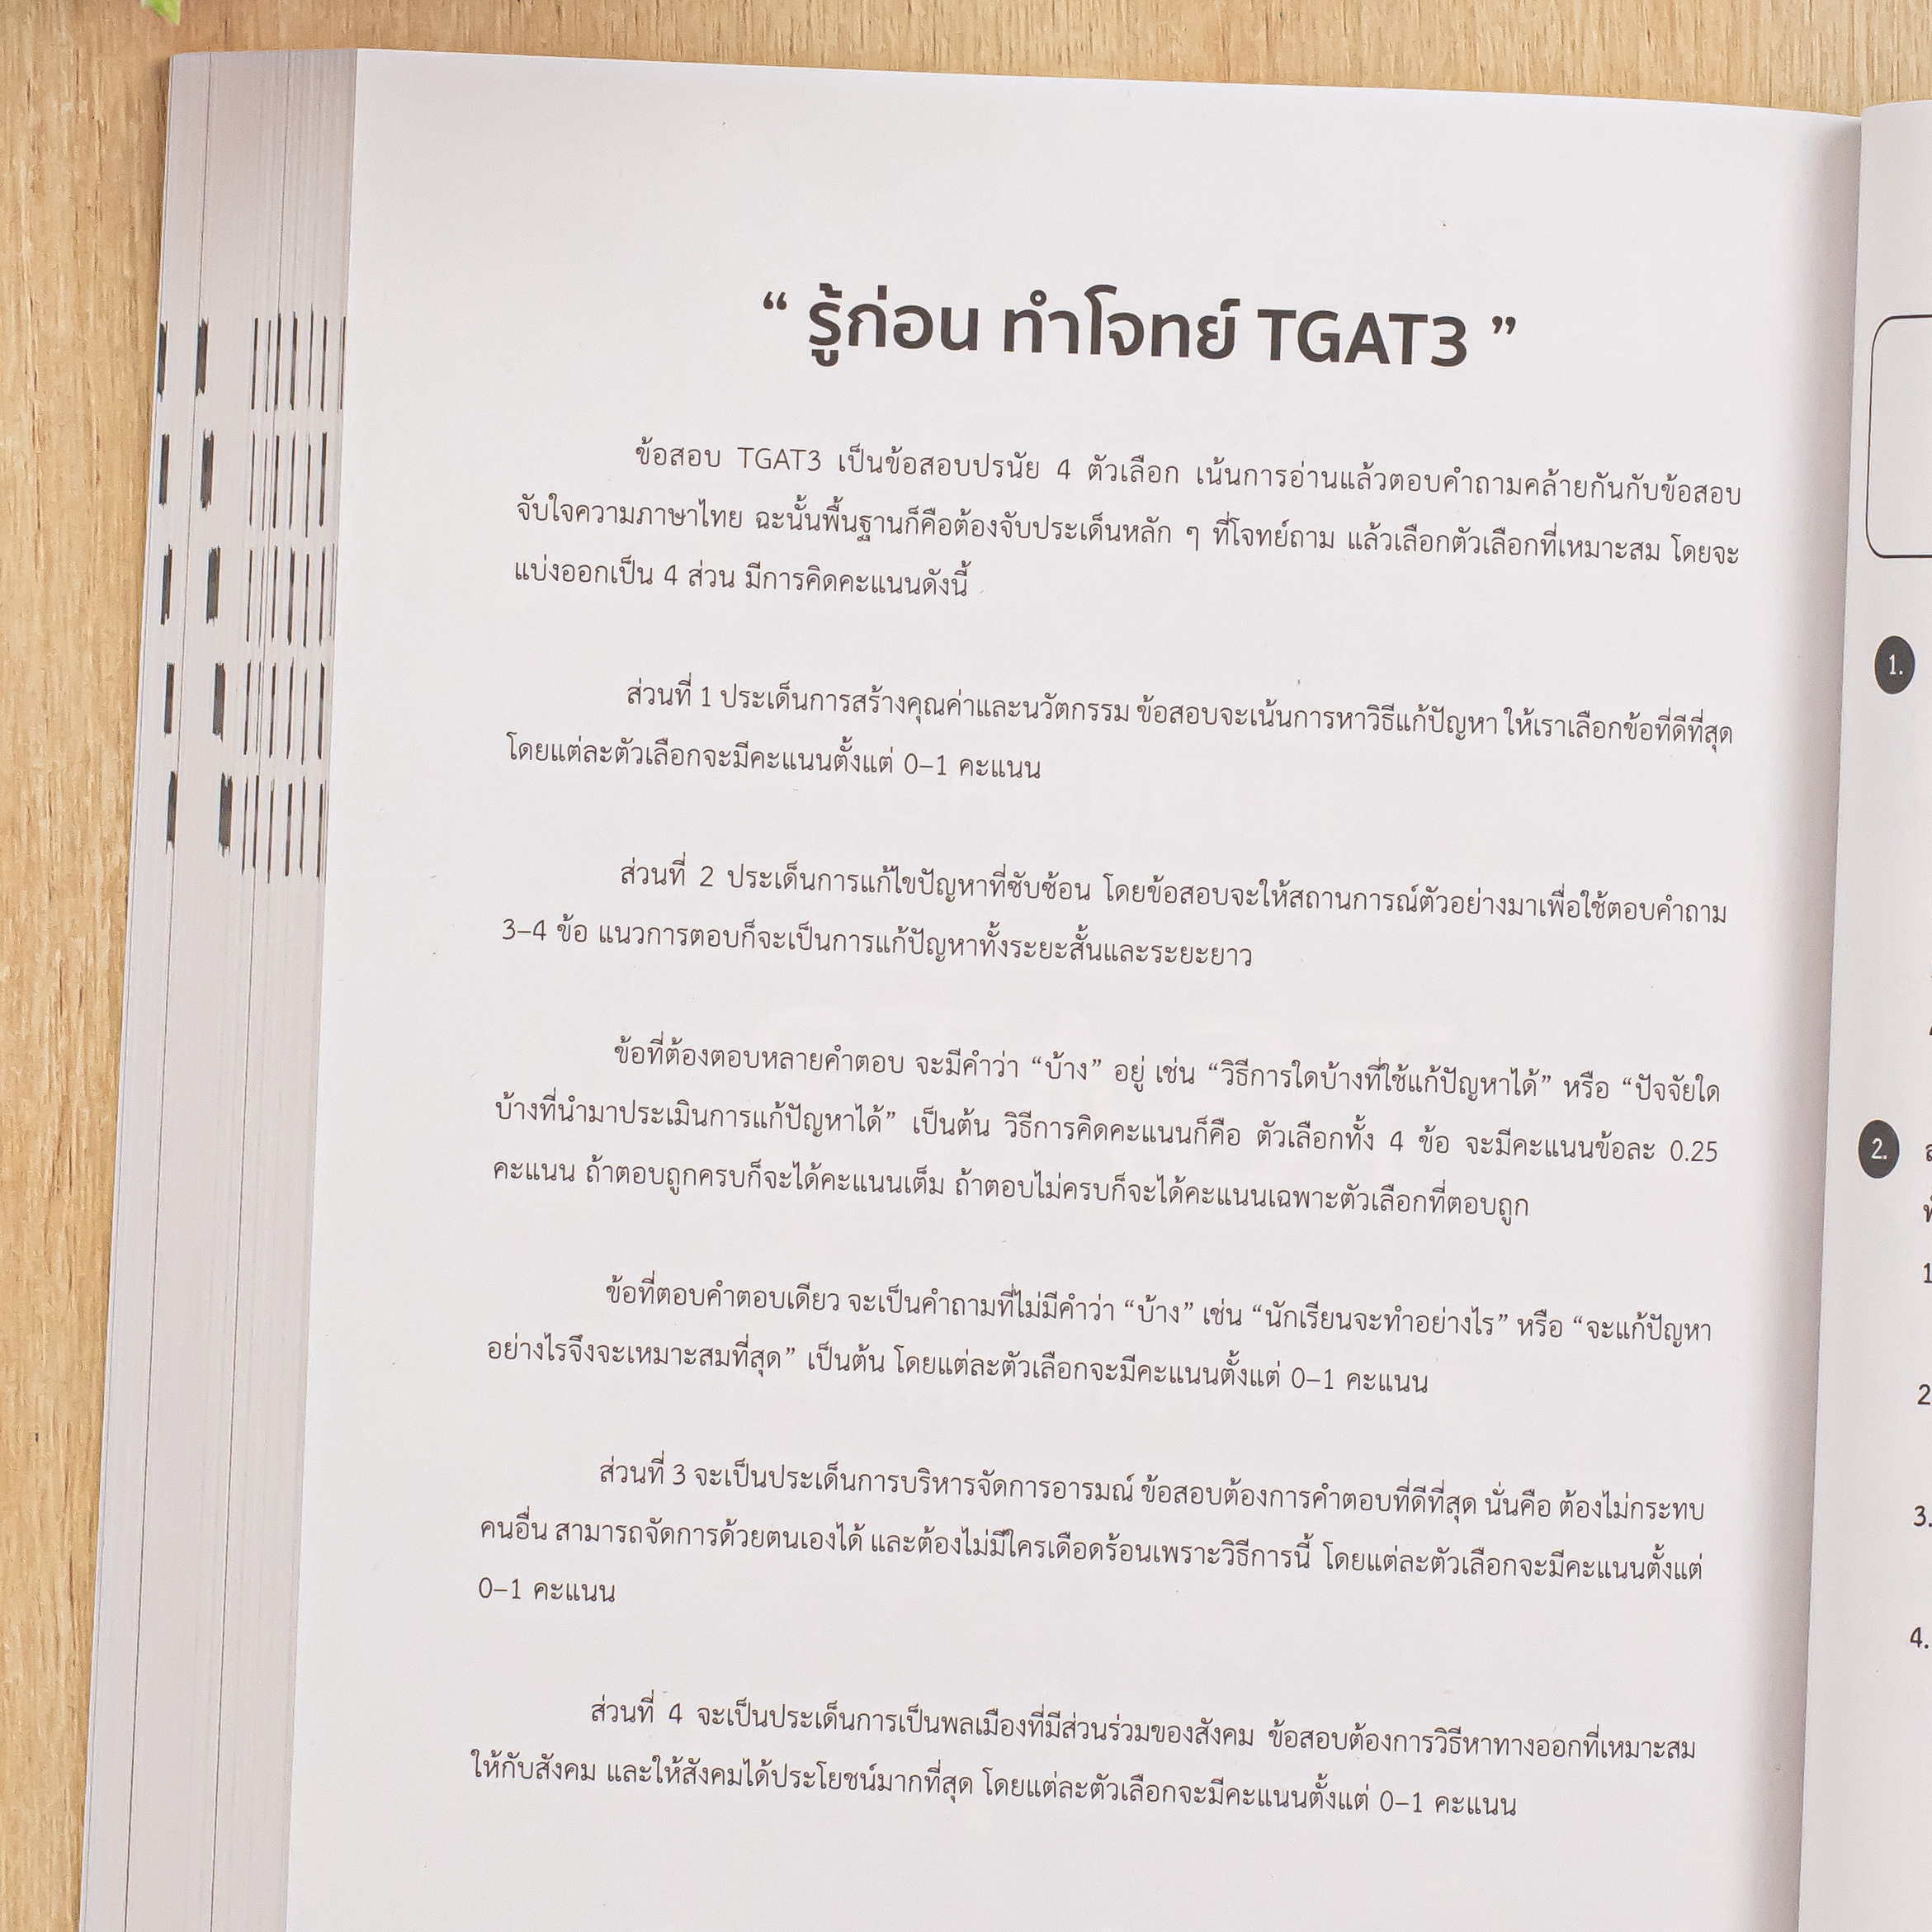 “ รู้ก่อน ทำโจทย์ TGAT3 ”
ข้อสอบ TGAT3 เป็นข้อสอบปรนัย 4 ตัวเลือก เน้นการอ่านแล้วตอบคำถามคล้ายกันกับข้อสอบ
จับใจความภาษาไทย ฉะนั้นพื้นฐานก็คือต้องจับประเด็นหลัก ๆ ที่โจทย์ถาม แล้วเลือกตัวเลือกที่เหมาะสม โดยจะ
แบ่งออกเป็น 4 ส่วน มีการคิดคะแนนดังนี้
ส่วนที่ 1 ประเด็นการสร้างคุณค่าและนวัตกรรม ข้อสอบจะเน้นการหาวิธีแก้ปัญหา ให้เราเลือกข้อที่ดีที่สุด
โดยแต่ละตัวเลือกจะมีคะแนนตั้งแต่ 0–1 คะแนน
ส่วนที่ 2 ประเด็นการแก้ไขปัญหาที่ซับซ้อน โดยข้อสอบจะให้สถานการณ์ตัวอย่างมาเพื่อใช้ตอบคำถาม
3–4 ข้อ แนวการตอบก็จะเป็นการแก้ปัญหาทั้งระยะสั้นและระยะยาว
ข้อที่ต้องตอบหลายคำตอบ จะมีคำว่า “บ้าง” อยู่ เช่น “วิธีการใดบ้างที่ใช้แก้ปัญหาได้” หรือ “ปัจจัยใด
บ้างที่นำมาประเมินการแก้ปัญหาได้” เป็นต้น วิธีการคิดคะแนนก็คือ ตัวเลือกทั้ง 4 ข้อ จะมีคะแนนข้อละ 0.25
คะแนน ถ้าตอบถูกครบก็จะได้คะแนนเต็ม ถ้าตอบไม่ครบก็จะได้คะแนนเฉพาะตัวเลือกที่ตอบถูก
ข้อที่ตอบคำตอบเดียว จะเป็นคำถามที่ไม่มีคำว่า “บ้าง” เช่น “นักเรียนจะทำอย่างไร” หรือ “จะแก้ปัญหา
อย่างไรจึงจะเหมาะสมที่สุด” เป็นต้น โดยแต่ละตัวเลือกจะมีคะแนนตั้งแต่ 0–1 คะแนน
ส่วนที่ 3 จะเป็นประเด็นการบริหารจัดการอารมณ์ ข้อสอบต้องการคำตอบที่ดีที่สุด นั่นคือ ต้องไม่กระทบ
คนอื่น สามารถจัดการด้วยตนเองได้ และต้องไม่มีใครเดือดร้อนเพราะวิธีการนี้ โดยแต่ละตัวเลือกจะมีคะแนนตั้งแต่
0–1 คะแนน
ส่วนที่ 4 จะเป็นประเด็นการเป็นพลเมืองที่มีส่วนร่วมของสังคม ข้อสอบต้องการวิธีหาทางออกที่เหมาะสม
ให้กับสังคม และให้สังคมได้ประโยชน์มากที่สุด โดยแต่ละตัวเลือกจะมีคะแนนตั้งแต่ 0–1 คะแนน
1.
2.
1
2
3.
4.